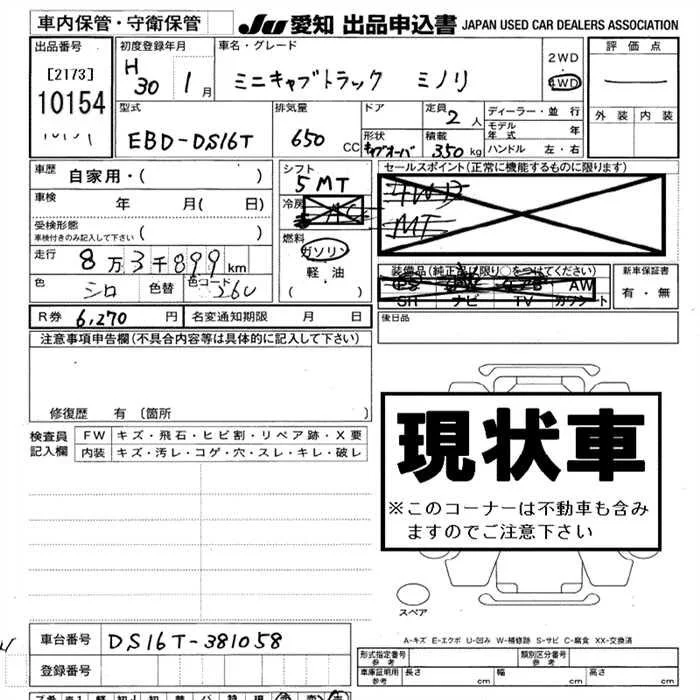 車内保管・守衛保管
JU 愛知 出品申込書 JAPAN USED CAR DEALERS ASSOCIATION
出品番号
[2173]
10154
初度登録年月
H30 1月
車名・グレード
ミニキャブトラック ミノリ
2WD
4WD
評価点
外装 内装
型式
EBD-DS16T
排気量
650 CC
ドア
形状
キャブオーバ
定員
2人
積載
350kg
ディーラー・並行
モデル年式 年
ハンドル 左・右
車歴 自家用・( )
車検 年 月( 日)
受検形態
車検付きのみ記入して下さい ( )
走行 8万3千899km
色 シロ 色替 色コード 26U
シフト
5MT
冷房
燃料
ガソリン
軽油
( )
セールスポイント(正常に機能するものに限ります)
4WD
MT
装備品(純正品に限り○をつけてください)
AW
SR ナビ TV カワシート
新車保証書
有・無
R券 6,270円 名変通知期限 月 日
後日品
注意事項申告欄(不具合内容等は具体的に記入して下さい)
修復歴 有〔箇所 〕
検査員記入欄
FW キズ・飛石・ヒビ割・リペア跡・X要
内装 キズ・汚レ・コゲ・穴・スレ・キレ・破レ
現状車
※このコーナーは不動車も含み
ますのでご注意下さい
スペア
A-キズ E-エクボ U-凹み W-補修跡 S-サビ C-腐食 XX-交換済
車台番号 DS16T-381058
登録番号
型式指定番号 参考
類別区分番号 参考
車庫証明用 参考
長さ cm 幅 cm 高さ cm